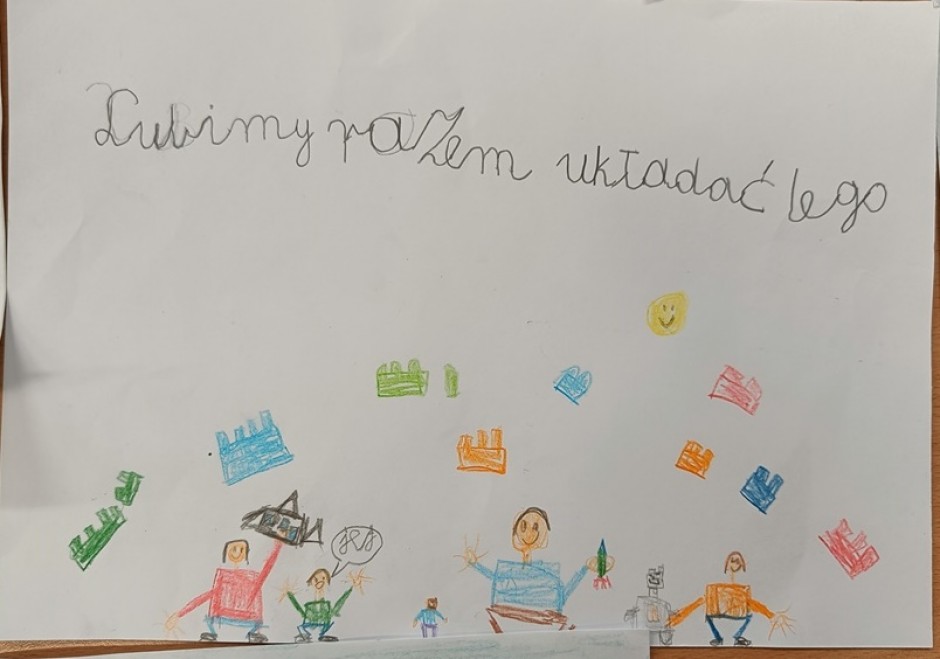 Lubimy razem układać lego
jej